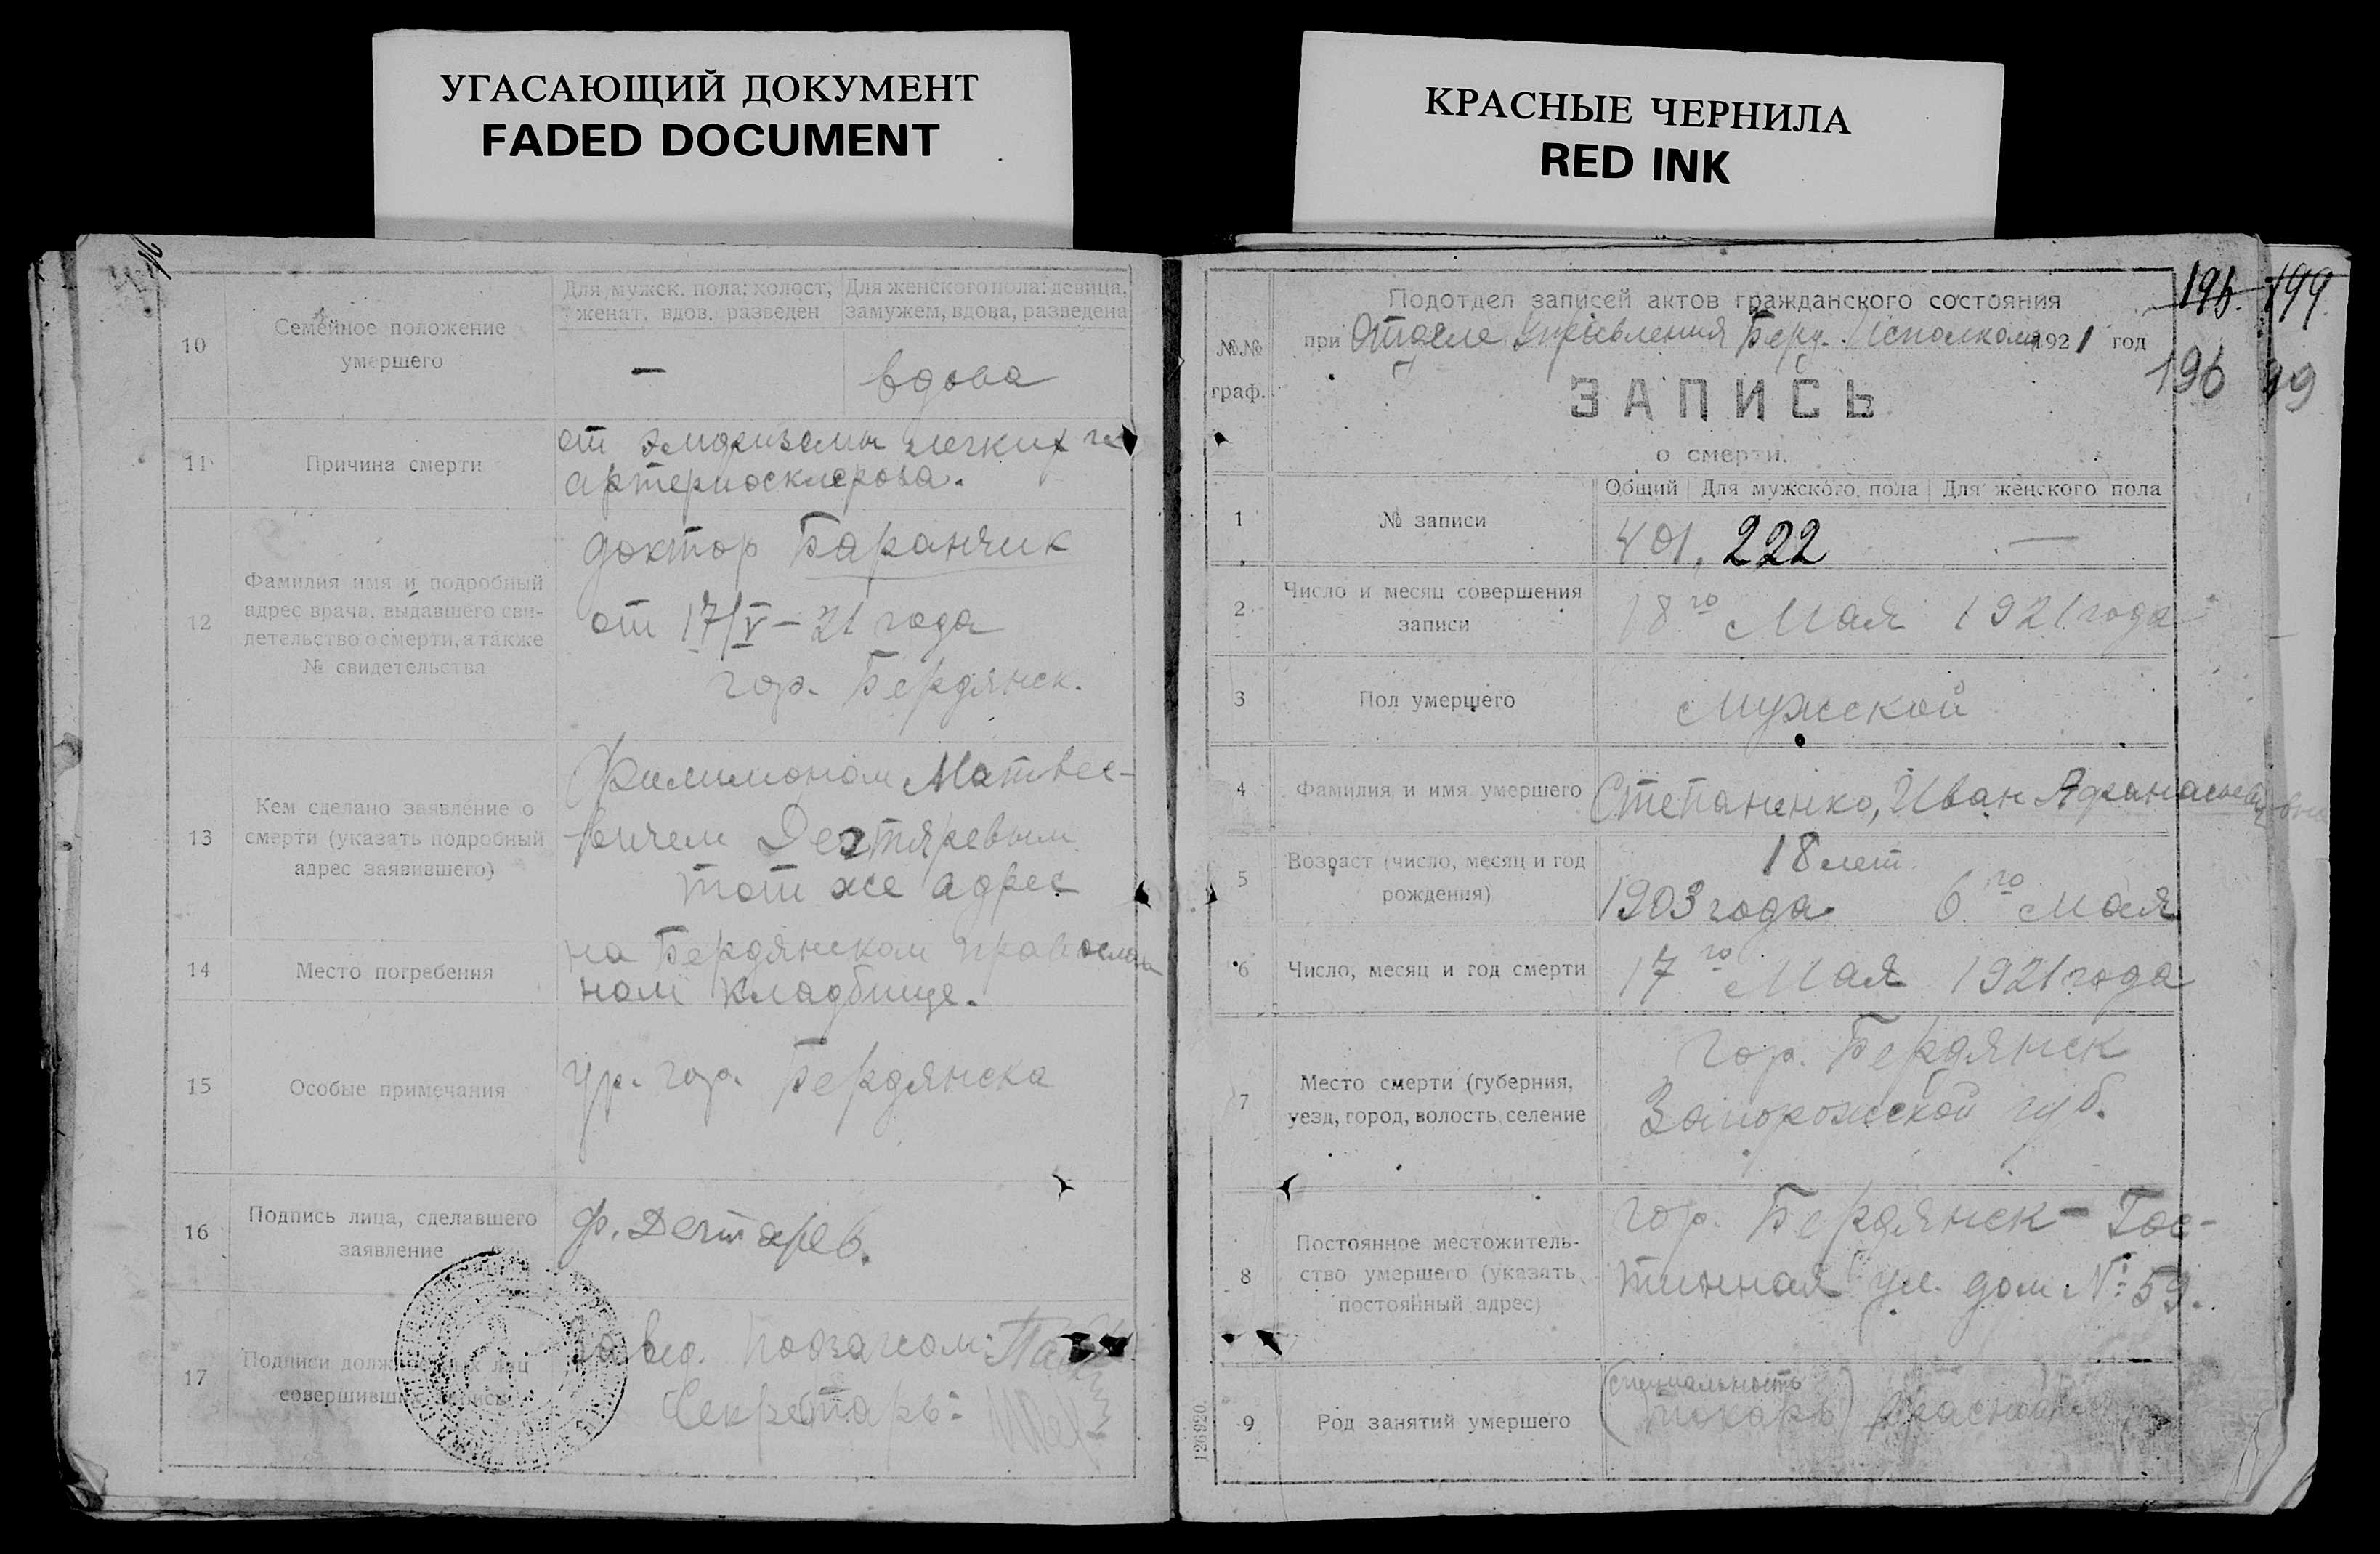 УГАСАЮЩИЙ ДОКУМЕНТ
FADED DOCUMENT
КРАСНЫЕ ЧЕРНИЛА
RED INK
10
Семейное положение
умершего
Для мужск. пола: холост,
женат, вдов, разведен
Для женского пола: девица,
замужем, вдова, разведена
—
вдова
11
Причина смерти
от эмфиземы легких и
артериосклероза.
12
Фамилия имя и подробный
адрес врача, выдавшего сви-
детельство о смерти, а также
№ свидетельства
доктор Баранчик
от 17/V – 21 года
гор. Бердянск.
13
Кем сделано заявление о
смерти (указать подробный
адрес заявившего)
Филимоном Матвее-
вичем Дегтяревым
тот же адрес
14
Место погребения
на Бердянском православ
ном кладбище.
15
Особые примечания
ур. гор. Бердянска
16
Подпись лица, сделавшего
заявление
Ф. Дегтярев.
17
Подписи должностных лиц
совершивших запись
Завед. Подзагсом:
Секретарь:
№№
граф.
Подотдел записей актов гражданского состояния
при Отделе Управления Берд. Исполкома 1921 год
196. 199.
196 99
ЗАПИСЬ
о смерти.
Общий Для мужского пола Для женского пола
1
№ записи
401. 222 —
2
Число и месяц совершения
записи
18го Мая 1921 года
3
Пол умершего
мужской
4
Фамилия и имя умершего
Степаненко, Иван
5
Возраст (число, месяц и год
рождения)
18 лет
1903 года. 6го мая
6
Число, месяц и год смерти
17го Мая 1921 года
7
Место смерти (губерния,
уезд, город, волость, селение
гор. Бердянск
Запорожской губ.
8
Постоянное местожитель-
ство умершего (указать
постоянный адрес)
гор. Бердянск – Гос-
тинная ул. дом № 59.
9
Род занятий умершего
(специальность
токарь)
126920.